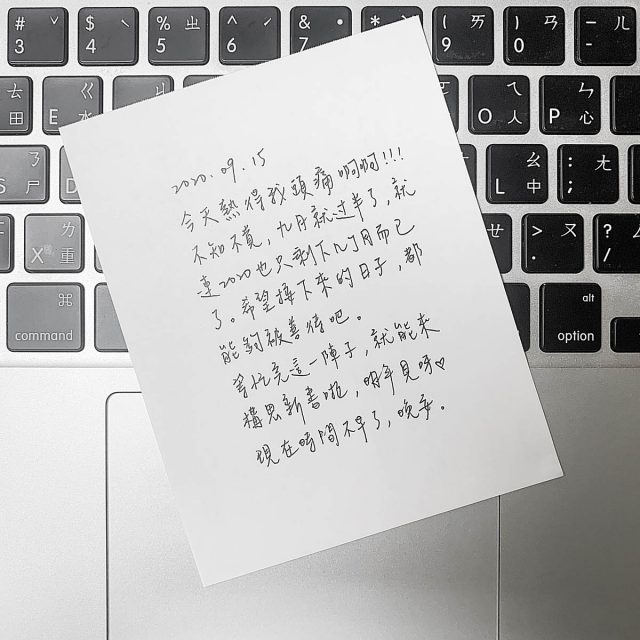 # ˇ 3
$ ˋ 4
% ㄓ 5
^ ˊ 6
& ˙ 7
*
( ㄞ 9
) ㄢ 0
— ㄦ -
田
E ㄍ 水
O ㄟ 人
P ㄣ 心
S ㄋ 尸
D
L ㄠ 中
: ; ㄤ
X ㄌ 重
ㄝ
> . ㄡ
? / ㄥ
⌘ command
alt option
2020.09.15
今天熱得我頭痛啊啊!!!
不知不覺,九月就过半了,就
連2020也只剩下几个月而已
了。希望接下來的日子,都
能夠被善待吧。
等忙完這一陣子,就能來
構思新書啦,明年見呀♡
現在時間不早了,晚安。